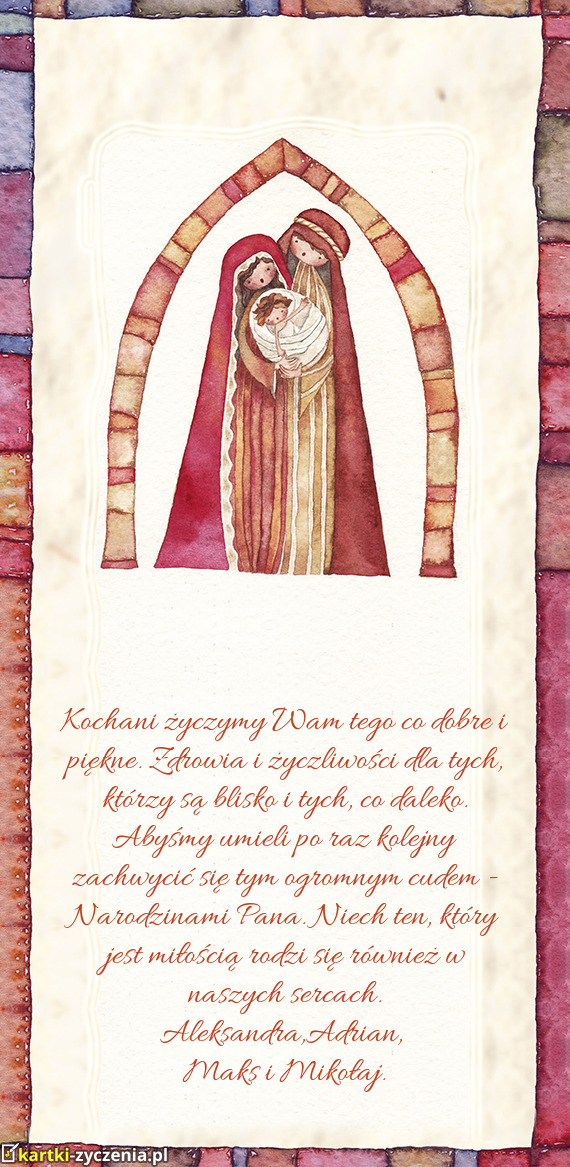 Kochani życzymy Wam tego co dobre i
piękne. Zdrowia i życzliwości dla tych,
którzy są blisko i tych, co daleko.
Abyśmy umieli po raz kolejny
zachwycić się tym ogromnym cudem -
Narodzinami Pana. Niech ten, który
jest miłością rodzi się również w
naszych sercach.
Aleksandra,Adrian,
Maks i Mikołaj.
kartki-zyczenia.pl